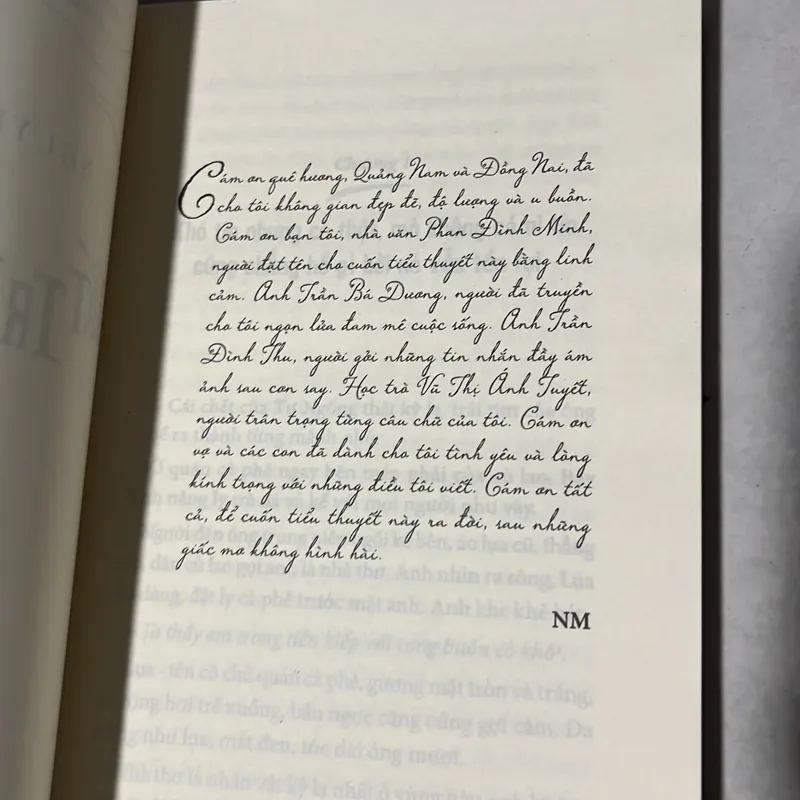 Cám ơn quê hương, Quảng Nam và Đồng Nai, đã
cho tôi không gian đẹp đẽ, độ lượng và u buồn.
Cám ơn bạn tôi, nhà văn Phan Đình Minh,
người đặt tên cho cuốn tiểu thuyết này bằng linh
cảm. Anh Trần Bá Dương, người đã truyền
cho tôi ngọn lửa đam mê cuộc sống. Anh Trần
Đình Thu, người gởi những tin nhắn đầy ám
ảnh sau cơn say. Học trò Vũ Thị Ánh Tuyết,
người trân trọng từng câu chữ của tôi. Cám ơn
vợ và các con đã dành cho tôi tình yêu và lòng
kính trọng với những điều tôi viết. Cám ơn tất
cả, để cuốn tiểu thuyết này ra đời, sau những
giấc mơ không hình hài.
NM